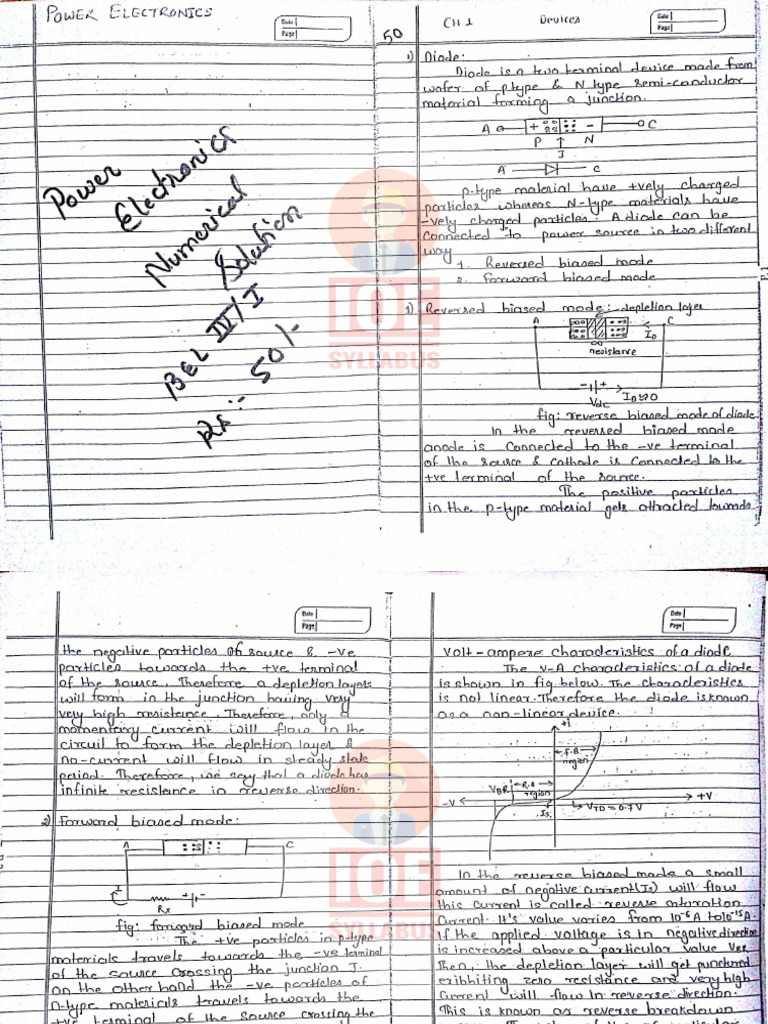 POWER ELECTRONICS
Date
Page
Power
Electronics
Numerical
Solution
BEL III/I
Rs :- 50/-
50
CH 1 Devices
Date
Page
1) Diode:
Diode is a two terminal device made from
wafer of p type & N type semi-conductor
material forming a junction.
A + - C
P N
J
A C
p-type material have +vely charged
particles whereas N-type materials have
-vely charged particles. A diode can be
connected to power source in two different
way
1. Reversed biased mode
2. Forward biased mode
1) Reversed biased mode: depletion layer
A C
I0
resistance
- +
Vdc
fig: reverse biased mode of diode
In the reversed biased mode
anode is connected to the -ve terminal
of the source & cathode is connected to the
+ve terminal of the source.
The positive particles
in the p-type material gets attracted towards
IOE
SYLLABUS
Date
Page
the negative particles of source & -ve
particles towards the +ve terminal
of the source. Therefore a depletion layers
will form in the junction having very
very high resistance. Therefore, only a
momentary current will flow in the
circuit to form the depletion layer &
no-current will flow in steady state
period. Therefore, we say that a diode has
infinite resistance in reverse direction.
2) Forward biased mode:
A C
I
+ -
fig: forward biased mode
The +ve particles in p-type
materials travels towards the -ve terminal
of the source crossing the junction J.
on the other hand the -ve particles of
n-type materials travels towards the
+ve terminal of the source crossing the
Date
Page
Volt-ampere characteristics of a diode
The V-A characteristics of a diode
is shown in fig below. The characteristics
is not linear. Therefore the diode is known
as a non-linear device.
+I
F.B
region
VBR
R.B
region
-V +V
Is
VTD = 0.7V
In the reverse biased made a small
amount of negative current (Is) will flow
this current is called reverse saturation
current. It's value varies from 10⁻⁶A to 10⁻¹⁵A.
If the applied voltage is in negative direction
is increased above a particular value VBR
Then, the depletion layer will get punctured
exibhiting zero resistance and very high
current will flow in reverse direction.
This is known as reverse breakdown
IOE
SYLLABUS